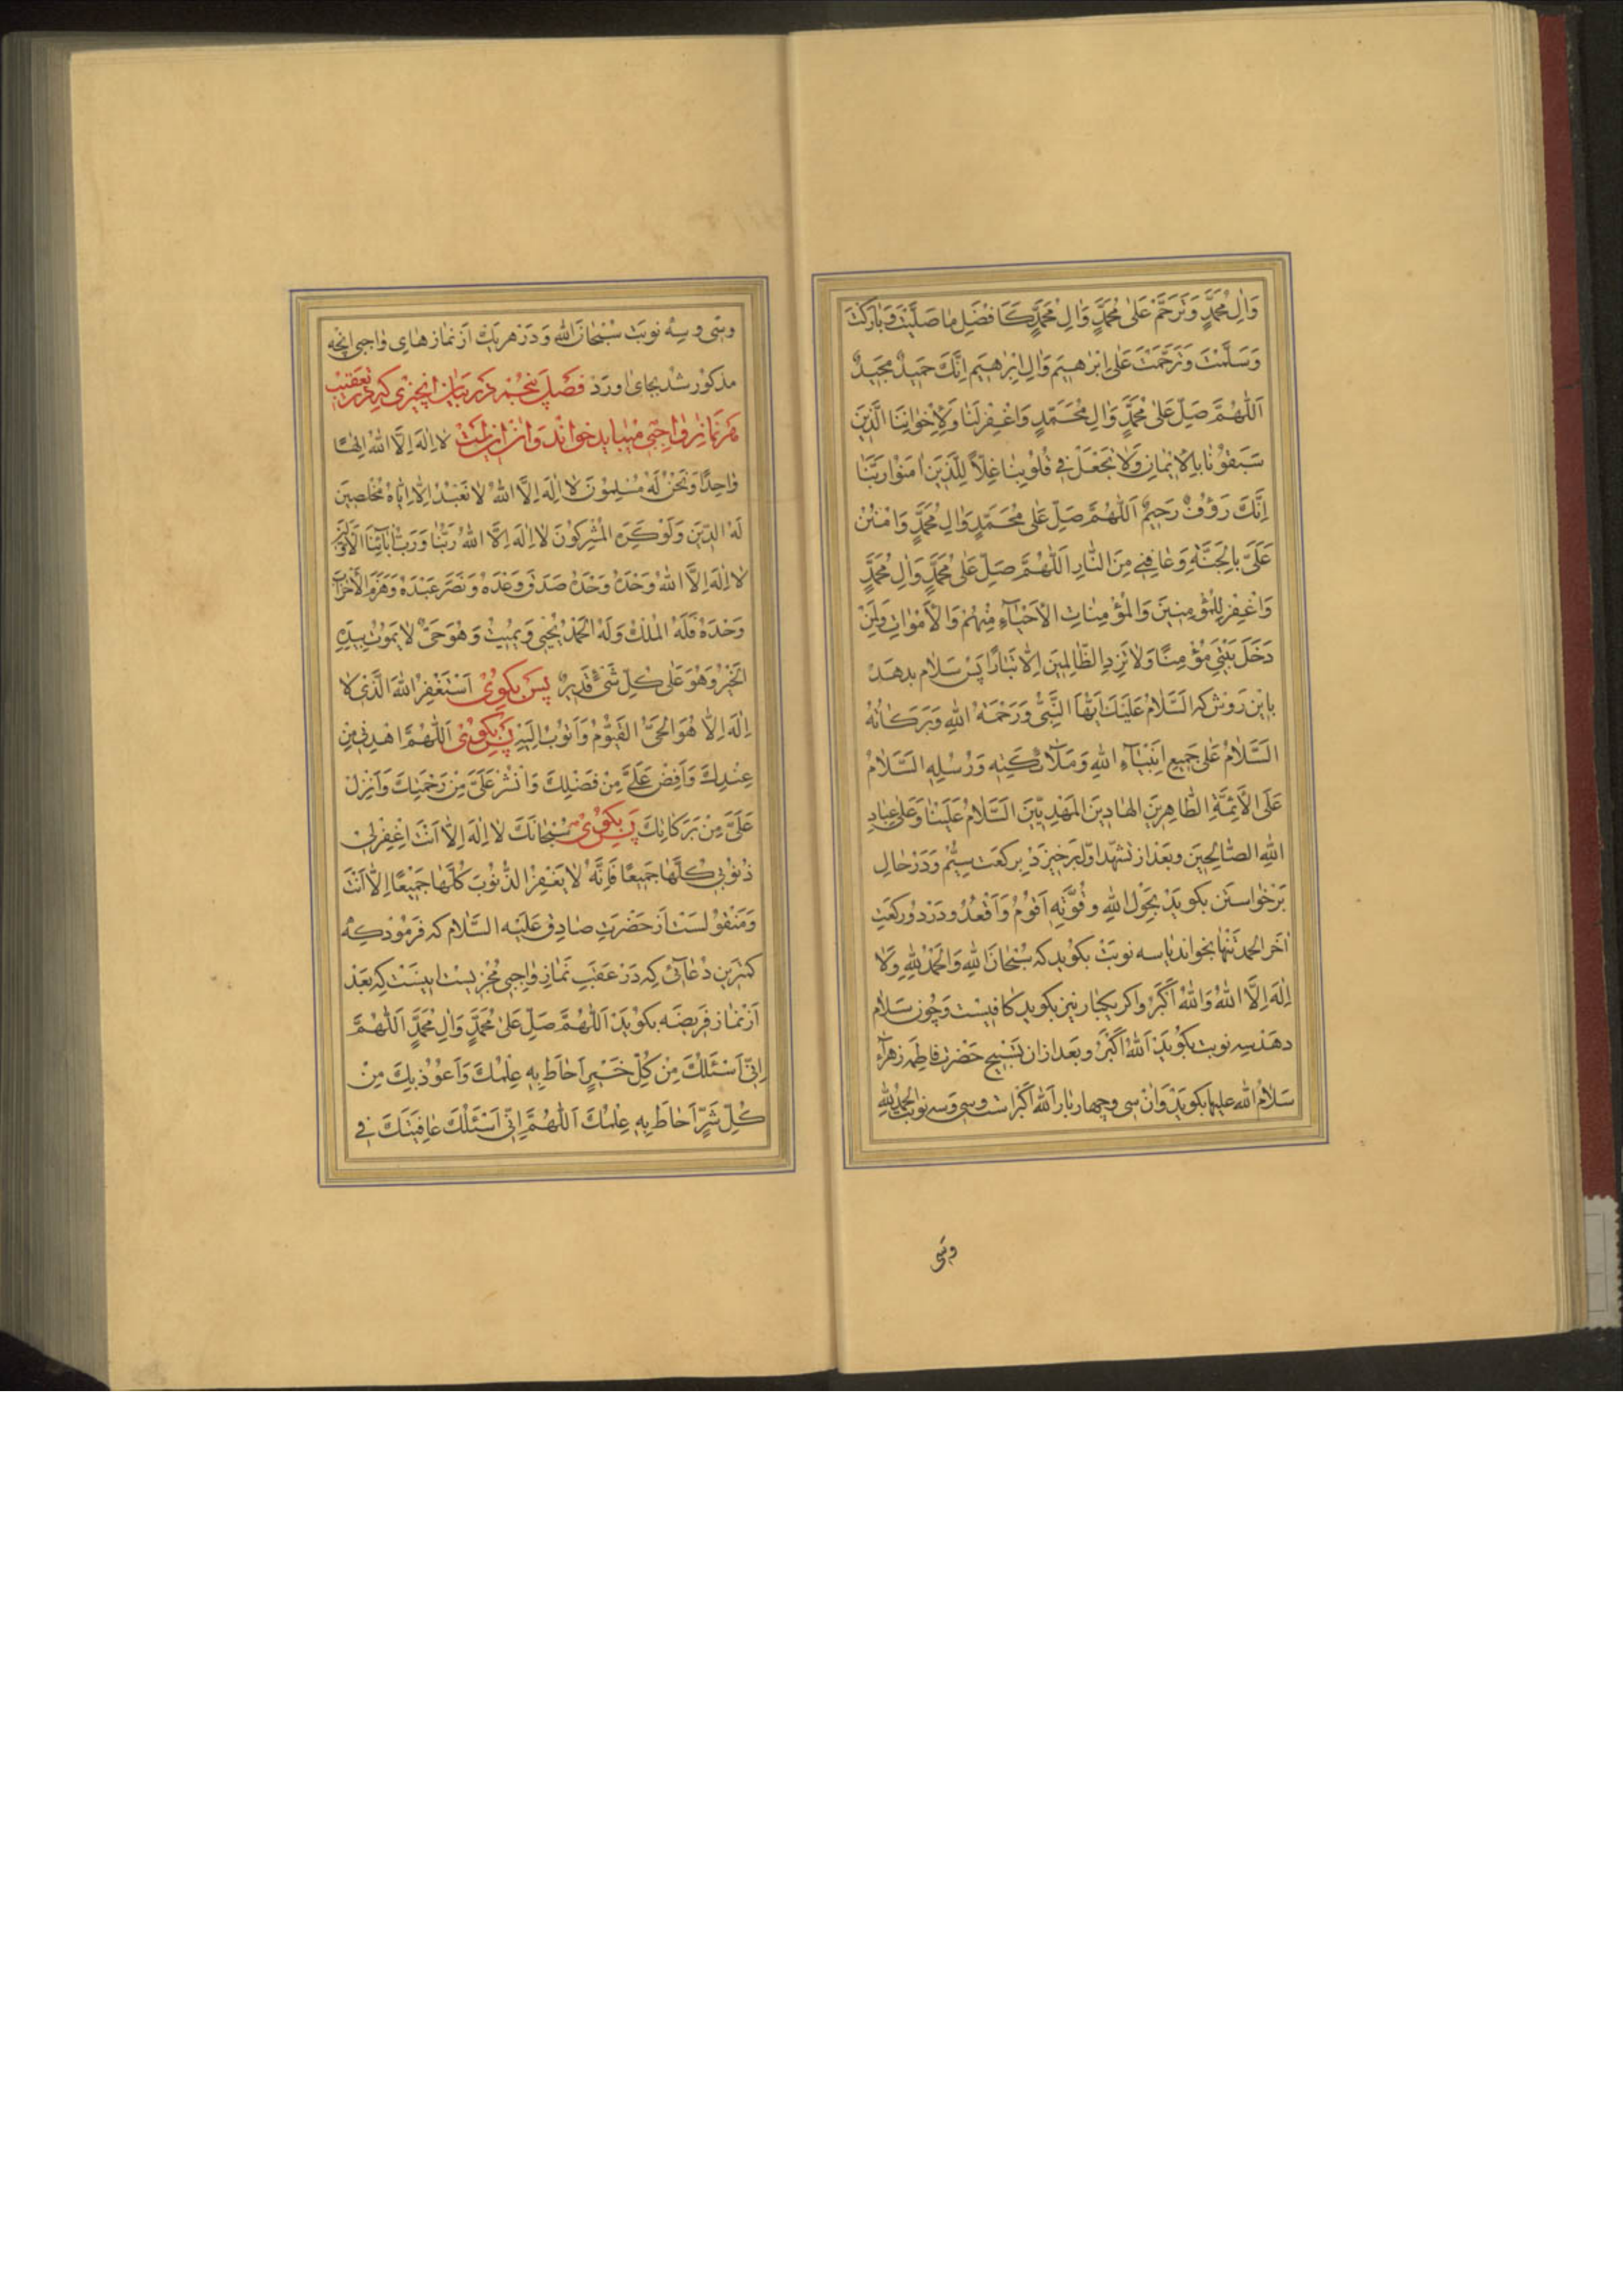 وَاٰلِ مُحَمَّدٍ وَتَرَحَّمْ عَلٰى مُحَمَّدٍ وَاٰلِ مُحَمَّدٍ كَاَفْضَلِ مٰا صَلَّيْتَ وَبٰارَكْتَ
وَسَلَّمْتَ وَتَرَحَّمْتَ عَلٰى اِبْرٰهيمَ وَاٰلِ اِبْرٰهيمَ اِنَّكَ حَميدٌ مَجيدٌ
اَللّٰهُمَّ صَلِّ عَلٰى مُحَمَّدٍ وَاٰلِ مُحَمَّدٍ وَاغْفِرْ لَنٰا وَلِاِخْوٰانِنَا الَّذينَ
سَبَقُوْنٰا بِالْاِيْمٰانِ وَلٰا تَجْعَلْ فى قُلُوْبِنٰا غِلّاً لِلَّذينَ اٰمَنُوْا رَبَّنٰا
اِنَّكَ رَؤُفٌ رَحيمٌ اَللّٰهُمَّ صَلِّ عَلٰى مُحَمَّدٍ وَاٰلِ مُحَمَّدٍ وَامْنُنْ
عَلَىَّ بِالْجَنَّةِ وَعٰافِنى مِنَ النّٰارِ اَللّٰهُمَّ صَلِّ عَلٰى مُحَمَّدٍ وَاٰلِ مُحَمَّدٍ
وَاغْفِرْ لِلْمُؤْمِنينَ وَالْمُؤْمِنٰاتِ الْاَحْيٰآءِ مِنْهُمْ وَالْاَمْوٰاتِ وَلِمَنْ
دَخَلَ بَيْتِىَ مُؤْمِنًا وَلٰا تَزِدِ الظّٰالِمينَ اِلّٰا تَبٰارًا پس سَلٰام بدهد
بِاين رَوش كه اَلسَّلٰامُ عَلَيْكَ اَيُّهَا النَّبِىُّ وَرَحْمَةُ اللهِ وَبَرَكٰاتُهُ
اَلسَّلٰامُ عَلٰى جَميعِ اَنْبِيٰآءِ اللهِ وَمَلٰآئِكَتِه وَرُسُلِهِ اَلسَّلٰامُ
عَلَى الْاَئِمَّةِ الطّٰاهِرينَ الهٰادينَ المَهْدِيّينَ اَلسَّلٰامُ عَلَيْنٰا وَعَلٰى عِبٰادِ
اللهِ الصّٰالِحينَ وبَعْد از تشهّد اوّل برخيزد بركعت سيُّم وَدَر حٰال
بَرخٰواستن بكويد بِحَوْلِ اللهِ وقُوَّتِهِ اَقُوْمُ وَاَقْعُدُ ودَر دو ركعت
اٰخر الحمد تنها بخواند يٰا سه نوبَت بكويد كه سُبْحٰانَ اللهِ وَالْحَمْدُ لِلّٰهِ وَلٰا
اِلٰهَ اِلَّا اللهُ وَاللهُ اَكْبَرُ واكر يكبٰار نيز بكويد كٰافيست وَچون سَلٰام
دهد سه نوبت بكويد اَللهُ اَكْبَرُ وبعد ازان تَسْبيح حَضْرت فاطمه زهرآء
سَلٰامُ الله عليها بكويد وَاٰن سى وچهار بٰار اَللهُ اَكْبَر است وسى وَسه نوبت اَلْحَمْدُ لِلّٰهِ
وسى
وسى و سه نوبَت سُبْحٰانَ اللهِ وَدَر هَر يك اَز نمٰاز هٰاى وٰاجبى انچه
مذكور شد بجاى اورد فصل پنجم در بيان انچيزى كه در تعقيب
هر نماز واجبى ميبايد خواند وان ازينست لٰا اِلٰهَ اِلَّا اللهُ اِلٰهًا
وٰاحِدًا وَنَحْنُ لَهُ مُسْلِمُوْنَ لٰا اِلٰهَ اِلَّا اللهُ لٰا نَعْبُدُ اِلّٰا اِيّٰاهُ مُخْلِصينَ
لَهُ الدّينَ وَلَوْ كَرِهَ الْمُشْرِكُوْنَ لٰا اِلٰهَ اِلَّا اللهُ رَبُّنٰا وَرَبُّ اٰبٰآئِنَا الْاَوَّلينَ
لٰا اِلٰهَ اِلَّا اللهُ وَحْدَهُ وَحْدَهُ صَدَقَ وَعْدَهُ وَنَصَرَ عَبْدَهُ وَهَزَمَ الْاَحْزٰابَ
وَحْدَهُ فَلَهُ الْمُلْكُ وَلَهُ الْحَمْدُ يُحْيِى وَيُميتُ وَهُوَ حَىٌّ لٰا يَمُوْتُ بِيَدِهِ
الْخَيْرُ وَهُوَ عَلٰى كُلِّ شَىْءٍ قَديرٌ پس بكوى اَسْتَغْفِرُ اللهَ الَّذى لٰا
اِلٰهَ اِلّٰا هُوَ الْحَىُّ الْقَيُّوْمُ وَاَتُوْبُ اِلَيْهِ پس بكوى اَللّٰهُمَّ اهْدِنى مِنْ
عِنْدِكَ وَاَفِضْ عَلَىَّ مِنْ فَضْلِكَ وَانْشُرْ عَلَىَّ مِنْ رَحْمَتِكَ وَاَنْزِلْ
عَلَىَّ مِنْ بَرَكٰاتِكَ پس بكوى سُبْحٰانَكَ لٰا اِلٰهَ اِلّٰا اَنْتَ اِغْفِرْ لى
ذُنُوْبى كُلَّهٰا جَميعًا فَاِنَّهُ لٰا يَغْفِرُ الذُّنُوْبَ كُلَّهٰا جَميعًا اِلّٰا اَنْتَ
وَمَنْقولست اَز حَضْرَتِ صٰادِق عَلَيْه السَّلٰام كه فَرمُود كه
كمترين دُعٰآئى كه دَر عَقَب نَمٰازِ وٰاجبى مُجزيست اينست كه بَعْد
اَز نمٰاز فَريضَه بكويَد اَللّٰهُمَّ صَلِّ عَلٰى مُحَمَّدٍ وَاٰلِ مُحَمَّدٍ اَللّٰهُمَّ
اِنّى اَسْئَلُكَ مِنْ كُلِّ خَيْرٍ اَحٰاطَ بِهِ عِلْمُكَ وَاَعُوْذُ بِكَ مِنْ
كُلِّ شَرٍّ اَحٰاطَ بِهِ عِلْمُكَ اَللّٰهُمَّ اِنّى اَسْئَلُكَ عٰافِيَتَكَ فى